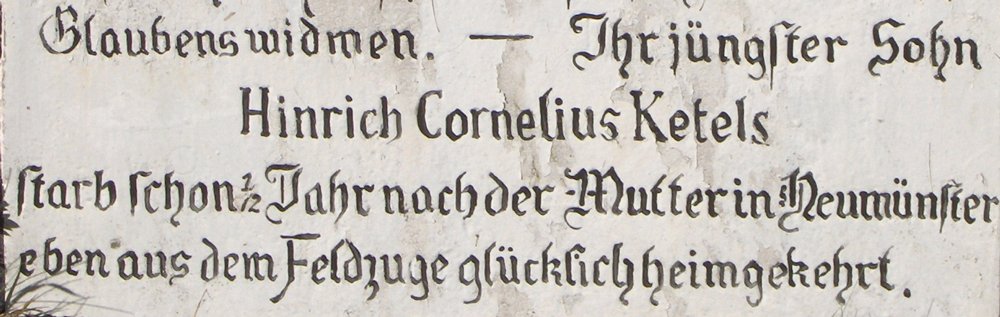 Glaubens widmen. — Ihr jüngſter Sohn
Hinrich Cornelius Ketels
ſtarb ſchon ½ Jahr nach der Mutter in Neumünſter
eben aus dem Feldzuge glücklich heimgekehrt.